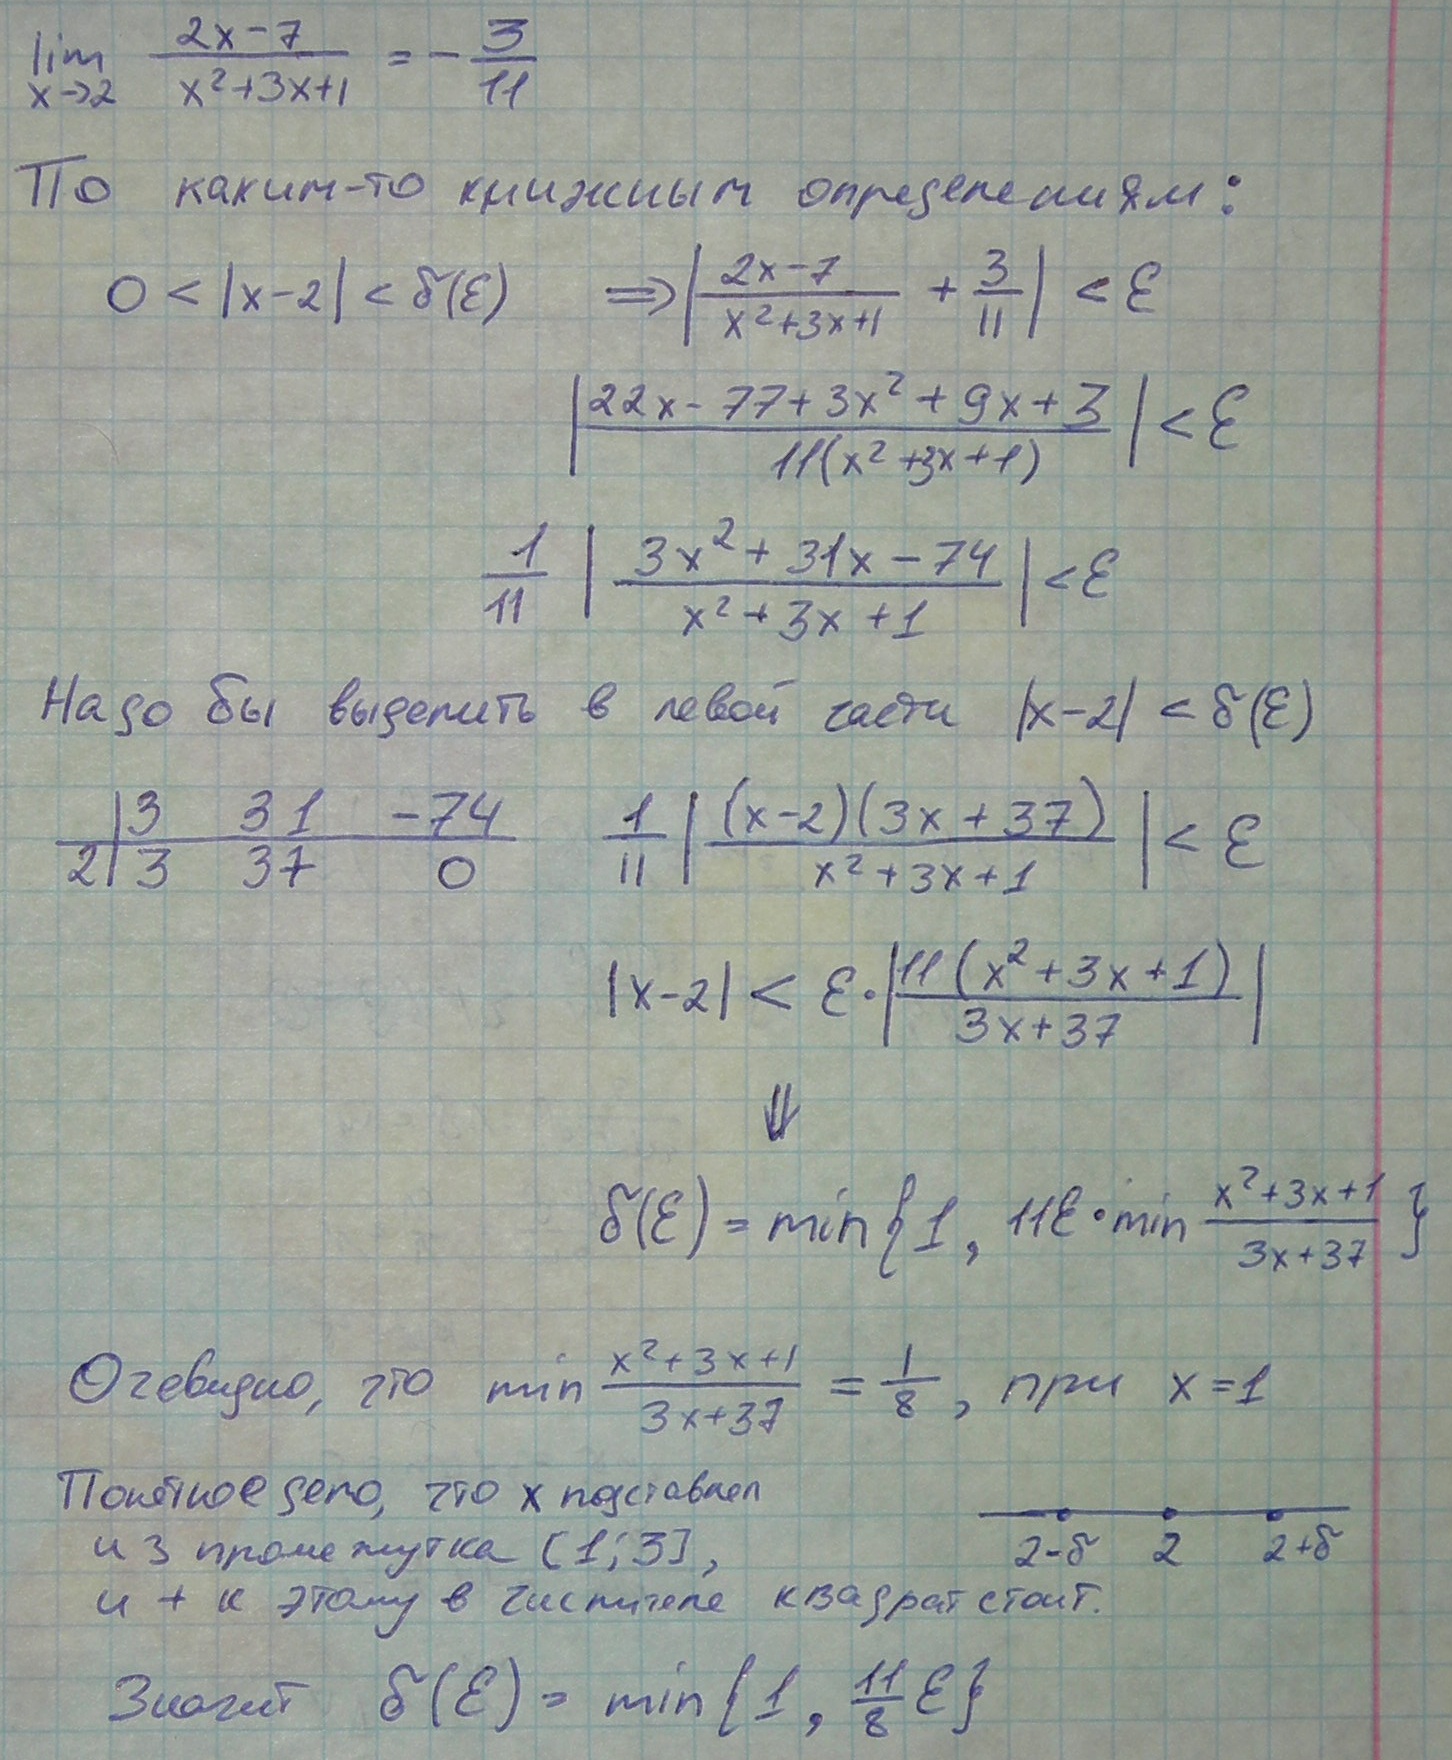 lim x→2 (2x-7)/(x²+3x+1) = -3/11
По каким-то книжным определениям:
0 < |x-2| < δ(ε) ⇒ |(2x-7)/(x²+3x+1) + 3/11| < ε
|(22x-77+3x²+9x+3)/(11(x²+3x+1))| < ε
1/11 |(3x²+31x-74)/(x²+3x+1)| < ε
Надо бы выделить в левой части |x-2| < δ(ε)
3 31 -74
2 3 37 0
1/11 |((x-2)(3x+37))/(x²+3x+1)| < ε
|x-2| < ε·|(11(x²+3x+1))/(3x+37)|
⇓
δ(ε) = min{1, 11ε·min (x²+3x+1)/(3x+37)}
Очевидно, что min (x²+3x+1)/(3x+37) = 1/8, при x=1
Понятное дело, что x подставляем
из промежутка [1;3],
и + к этому в числителе квадрат стоит.
2-δ 2 2+δ
Значит δ(ε) = min{1, 11/8 ε}